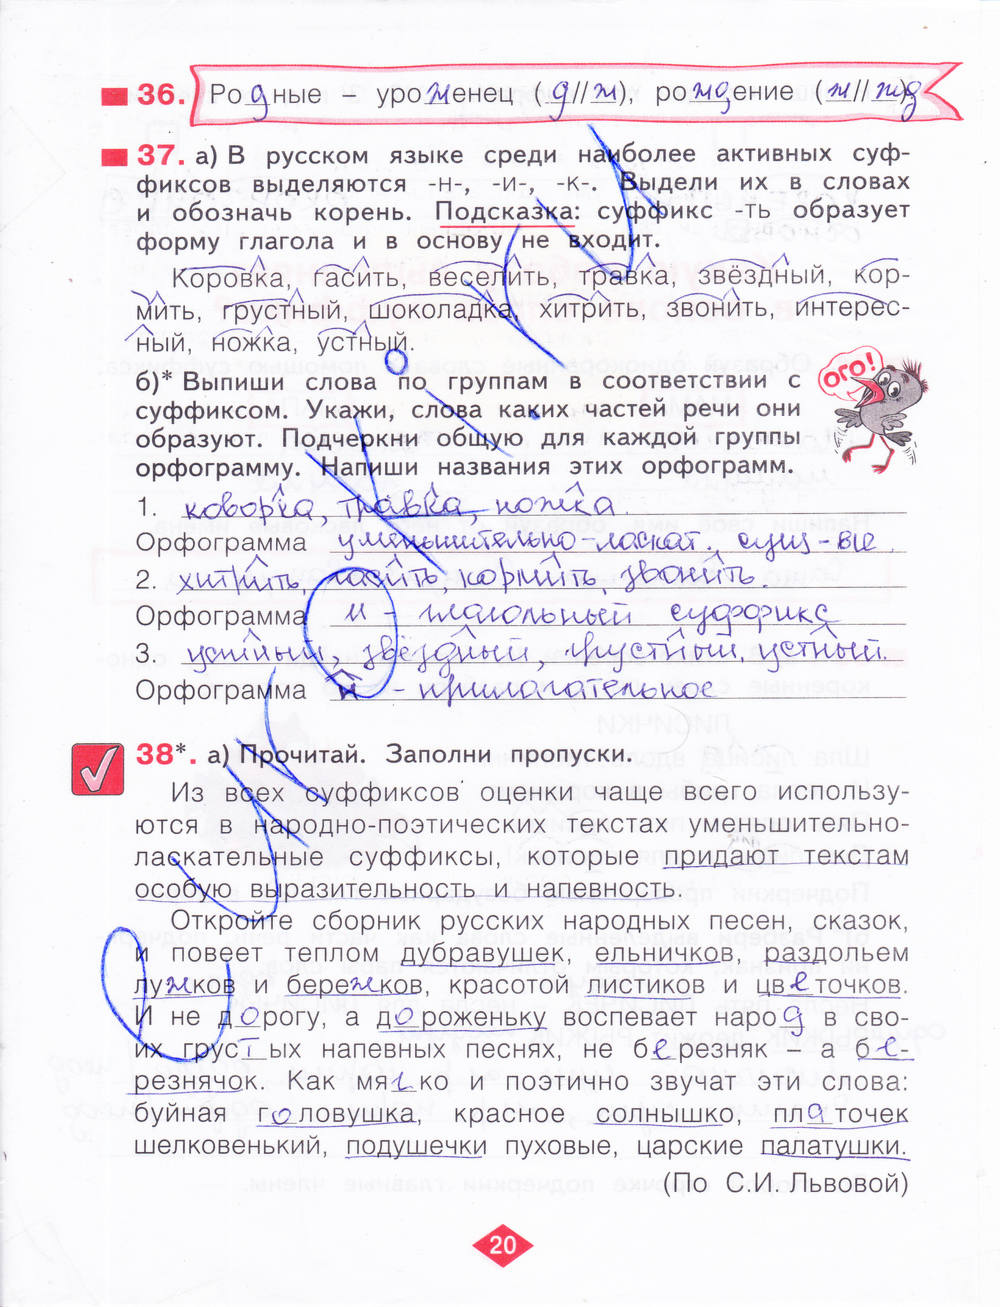 36. Родные – уроженец (д//ж), рождение (ж//жд)
37. а) В русском языке среди наиболее активных суф-
фиксов выделяются -н-, -и-, -к-. Выдели их в словах
и обозначь корень. Подсказка: суффикс -ть образует
форму глагола и в основу не входит.
Коровка, гасить, веселить, травка, звёздный, кор-
мить, грустный, шоколадка, хитрить, звонить, интерес-
ный, ножка, устный.
ОГО!
б)* Выпиши слова по группам в соответствии с
суффиксом. Укажи, слова каких частей речи они
образуют. Подчеркни общую для каждой группы
орфограмму. Напиши названия этих орфограмм.
1. коворка, травка, ножка
Орфограмма уменьшительно-ласкат. сущ-ые.
2. хитрить, гасить, кормить, звонить.
Орфограмма и - глагольный суффикс
3. устный, звёздный, грустный, устный.
Орфограмма н - прилагательное
38*. а) Прочитай. Заполни пропуски.
Из всех суффиксов оценки чаще всего использу-
ются в народно-поэтических текстах уменьшительно-
ласкательные суффиксы, которые придают текстам
особую выразительность и напевность.
Откройте сборник русских народных песен, сказок,
и повеет теплом дубравушек, ельничков, раздольем
лужков и бережков, красотой листиков и цветочков.
И не дорогу, а дороженьку воспевает народ в сво-
их грустых напевных песнях, не березняк – а бе-
резнячок. Как мягко и поэтично звучат эти слова:
буйная головушка, красное солнышко, платочек
шелковенький, подушечки пуховые, царские палатушки.
(По С.И. Львовой)
20